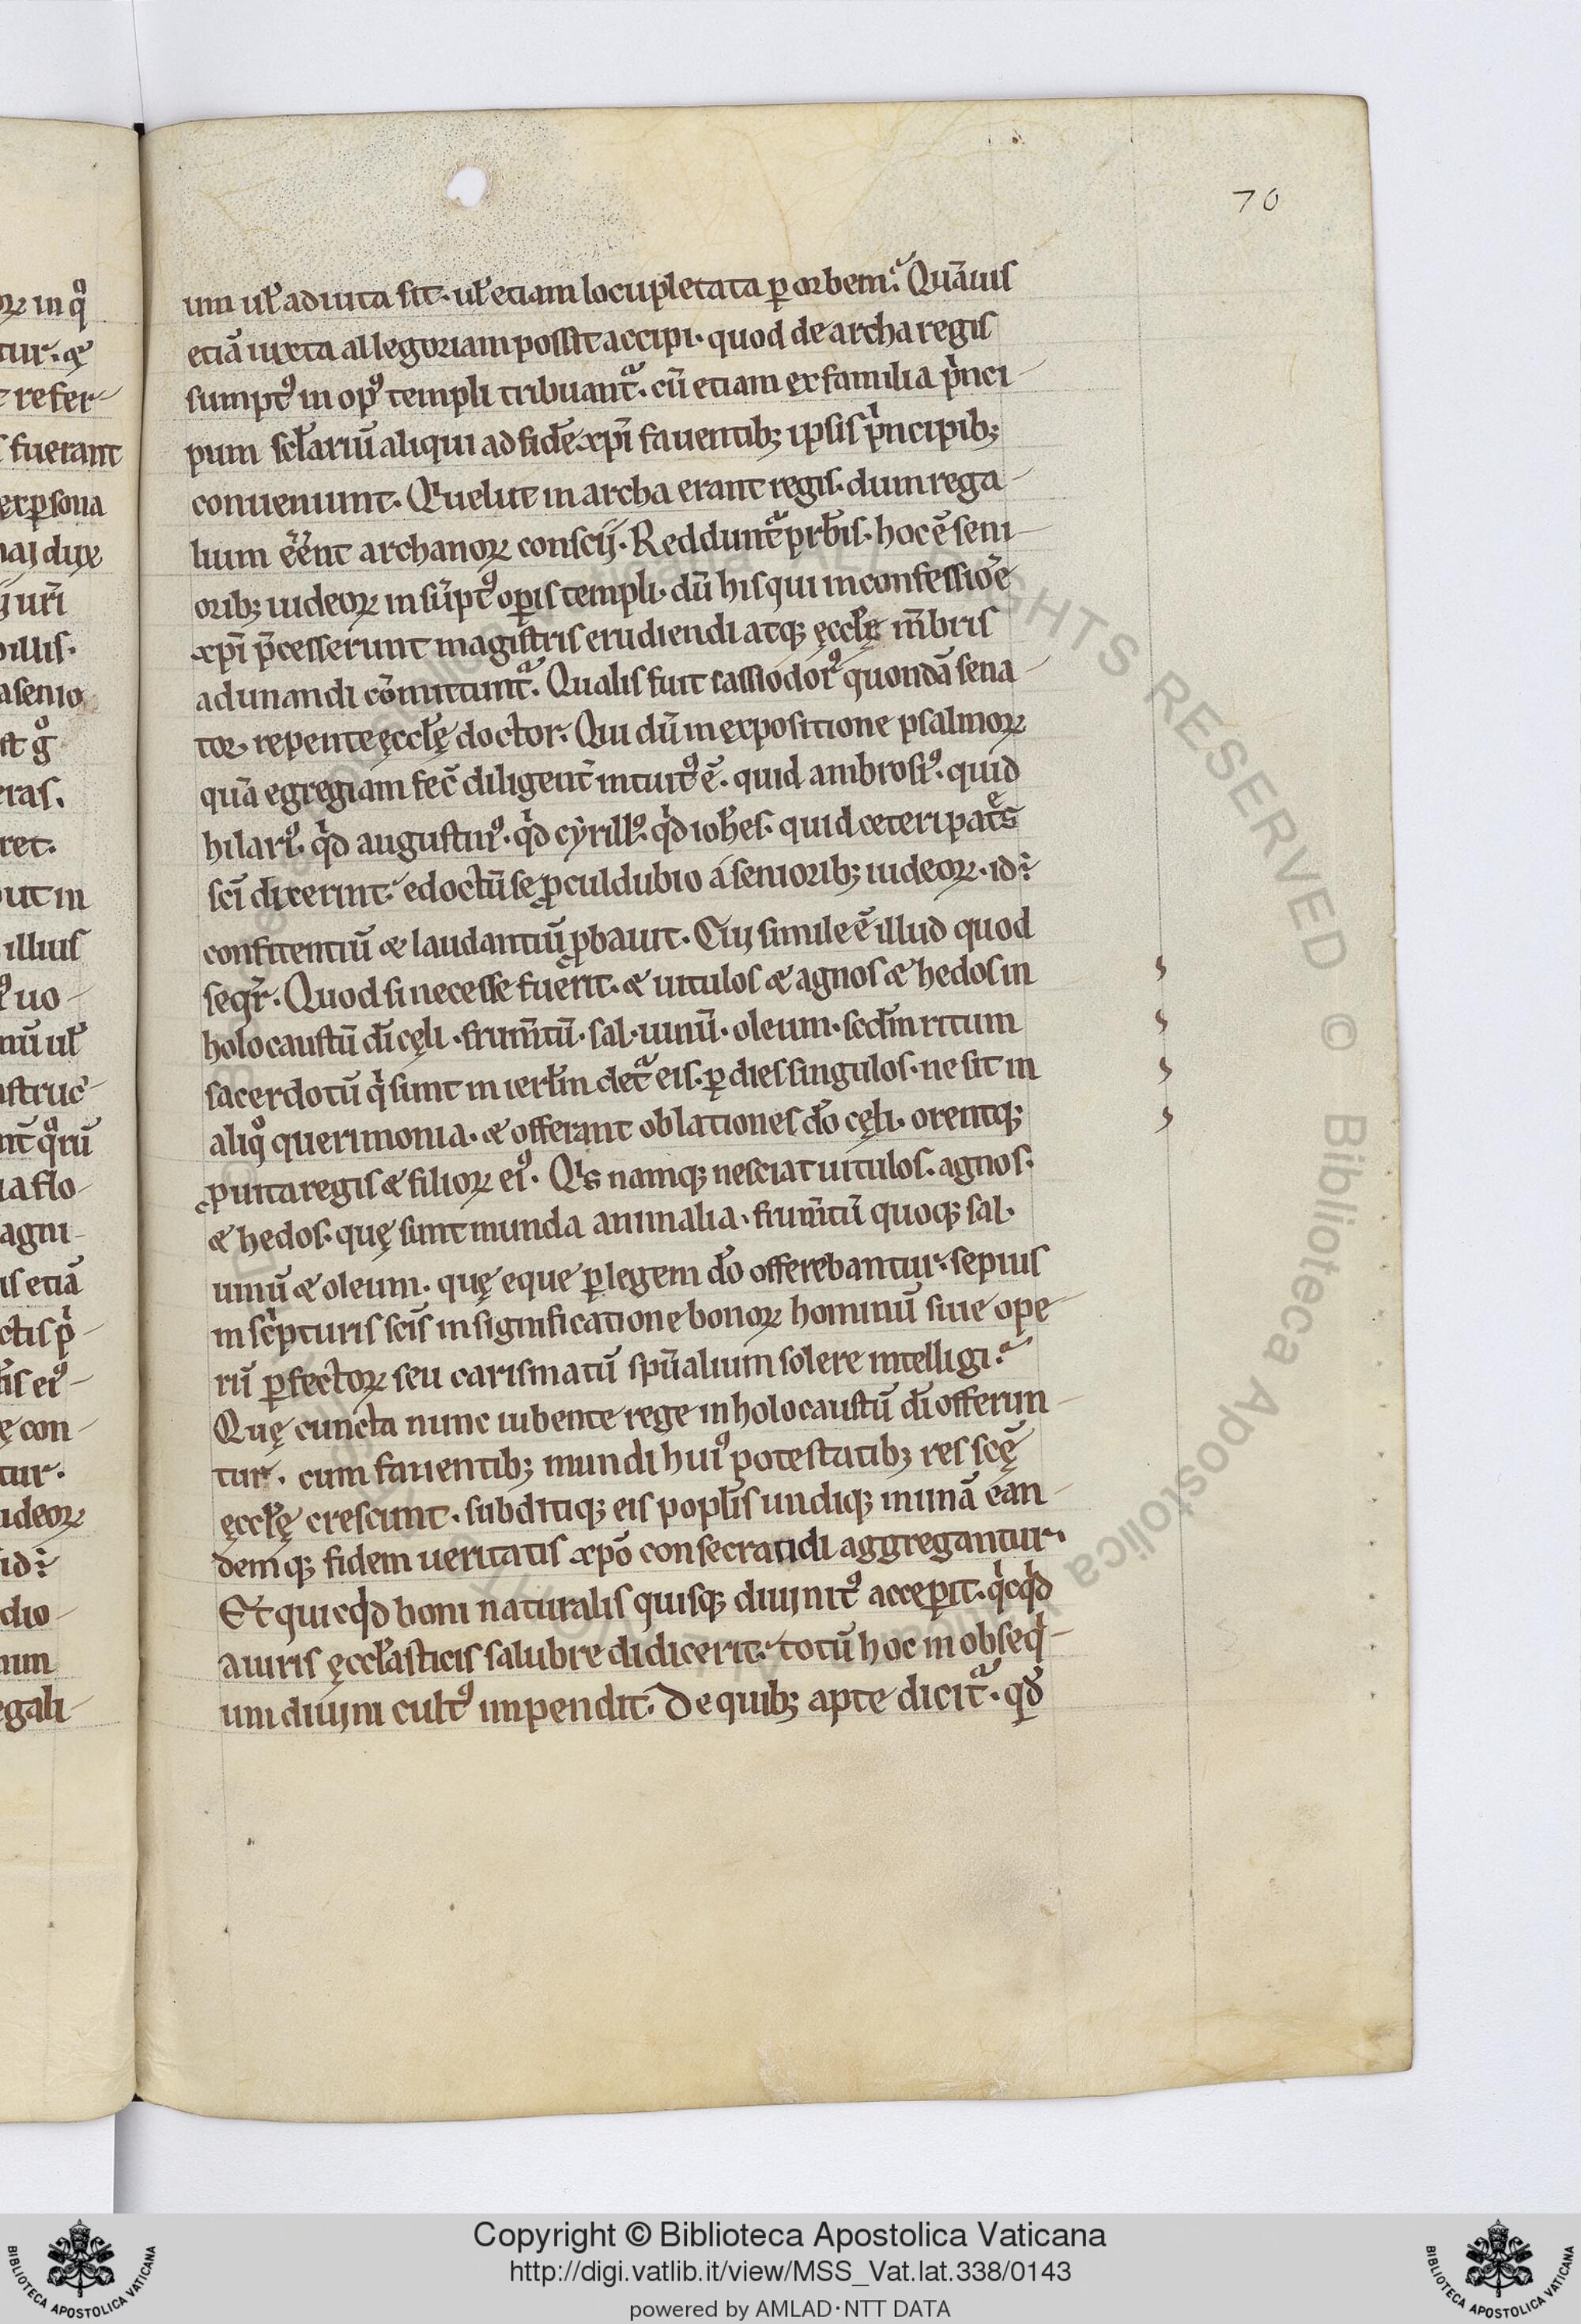 70
um ul̃ adiuta sit · ul̃ etiam locupletata ꝑ orbem. Quãuis
etiã iuxta allegoriam possit accipi · quod de archa regis
sumptꝰ in opꝰ templi tribuant᷑ · cũ etiam ex familia pͥnci
pum scl̃ariũ aliqui ad fidẽ xp̃i fauentib; ipsis pͥncipib;
conueniunt. Qui uelut in archa erant regis · dum rega
lium eẽnt archanoꝝ conscij. Reddunt᷑ prb̃is · hoc ẽ seni
orib; iudeoꝝ in sũptꝰ oꝑis templi · dũ his qui in confessiõe
xp̃i p̃cesserunt magistris erudiendi atq; ęccl̃ę m̃bris
adunandi cõmittunt᷑. Qualis fuit cassiodorꝰ quondã sena
tor · repente ęccl̃ę doctor. Qui dũ in expositione psalmoꝝ
quã egregiam fec̃ diligent̃ intuitꝰ ẽ · quid ambrosiꝰ · quid
hilariꝰ · qͥd augustinꝰ · qͥd cyrillꝰ · qͥd ioh̃es · quid ceteri pat͛s
sc̃i dixerint · edoctũ se ꝓculdubio a senioribꝫ iudeoꝝ · id ÷
confitentiũ ⁊ laudantiũ ꝓbauit. Cui simile ẽ illud quod
seqr̃. Quod si necesse fuerit · ⁊ uitulos ⁊ agnos ⁊ hedos in
holocaustũ dĩ cęli · frum̃tũ · sal · uinũ · oleum · scd̃m ritum
sacerdotũ qͥ sunt in ierl̃m det᷑ eis · ꝑ dies singulos · ne sit in
aliqͦ querimonia · ⁊ offerant oblationes dõ cęli · orentq;
ꝓ uita regis ⁊ filioꝝ eiꝰ. Qͥs namq; nesciat uitulos · agnos ·
⁊ hedos · quę sunt munda animalia · frum̃tũ quoq; sal ·
uinũ ⁊ oleum · quę eque ꝑ legem dõ offerebantur · sepius
in scͥpturis scĩs in significatione bonoꝝ hominũ siue ope
rũ ꝑfectoꝝ seu carismatũ spũalium solere intelligi.
Quę cuncta nunc iubente rege in holocaustũ dĩ offerun
tur · cum fauentib; mundi huiꝰ potestatib; res scę̃
ęccl̃ę crescunt · subditiq; eis popl̃is undiq; in unã ean
demq; fidem ueritatis xp̃o consecrandi aggregantur.
Et quicqͥd boni naturalis quisq; diuinitꝰ acceꝑit · qͥcqͥd
a uiris ęccl̃asticis salubre didicerit · totũ hoc in obseqͥ
um diuini cultꝰ impendit. De quib; apte dicit᷑ · qd̃
Copyright © Biblioteca Apostolica Vaticana
http://digi.vatlib.it/view/MSS_Vat.lat.338/0143
powered by AMLAD·NTT DATA